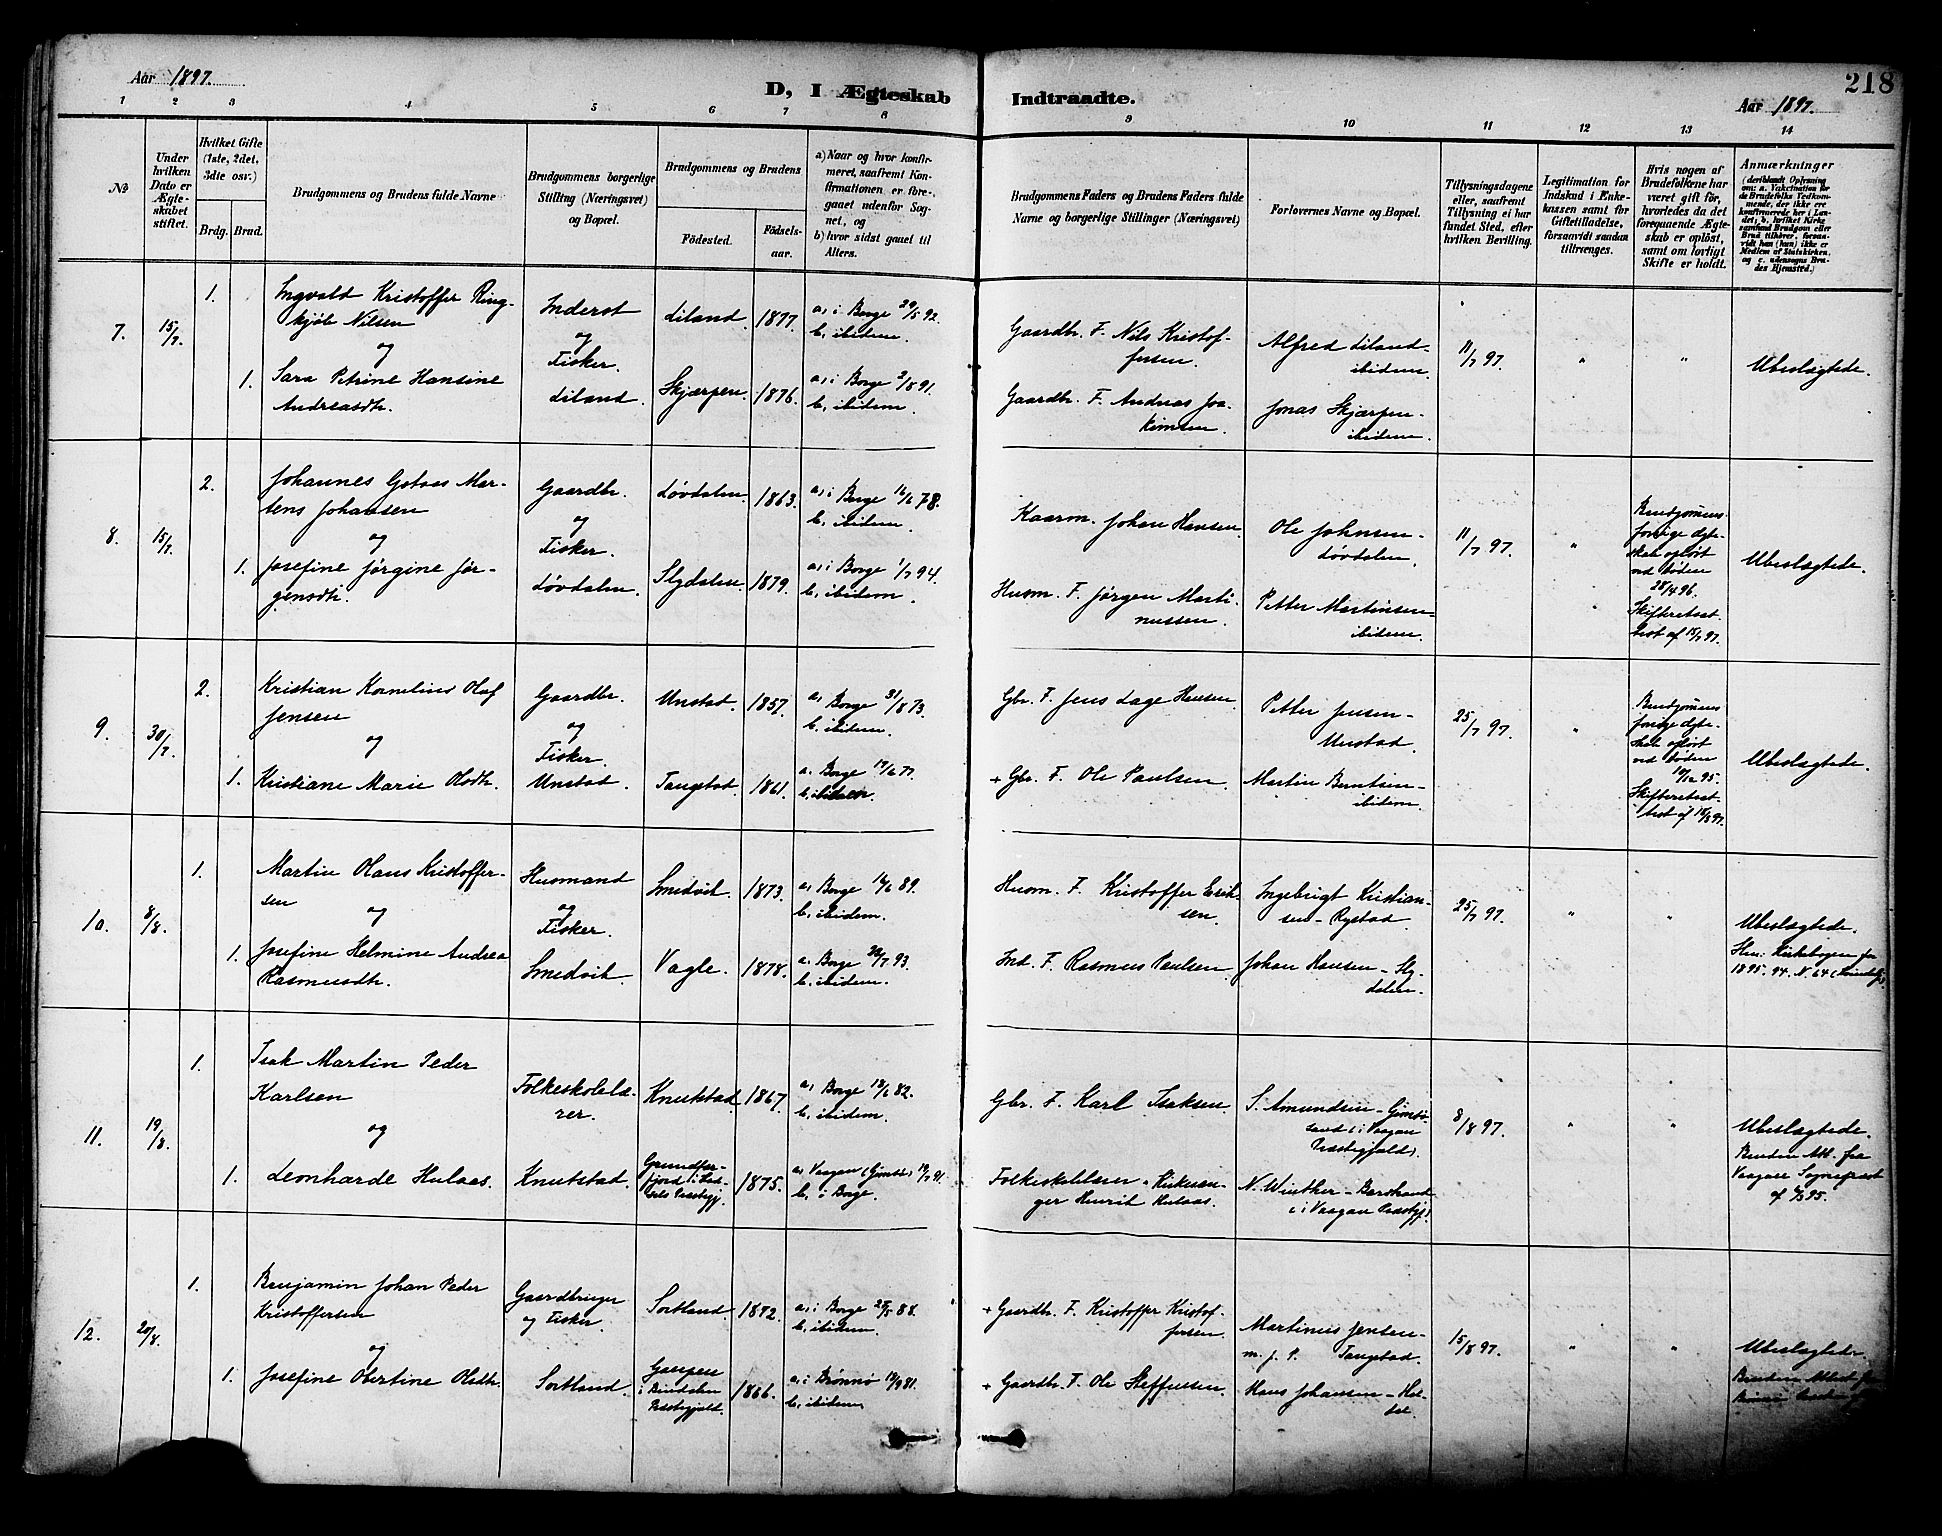 Aar 1897.
D, I Ægteskab Indtraadte.
218
Aar 1897.
1 2 3 4 5 6 7 8 9 10 11 12 13 14
№
Under hvilken Dato er Ægteskabet stiftet.
Hvilket Gifte (1ste, 2det, 3die osv.)
Brdg. Brud.
Brudgommens og Brudens fulde Navne
Brudgommens borgerlige Stilling (Næringsvei) og Bopæl.
Brudgommens og Brudens
Födested.
Födselsaar.
a) Naar og hvor konfirmeret, saafremt Konfirmationen er foregaaet udenfor Sognet, og
b) hvor sidst gaaet til Alters.
Brudgommens Faders og Brudens Faders fulde Navne og borgerlige Stillinger (Næringsvei)
Forlovernes Navne og Bopæl.
Tillysningsdagene eller, saafremt Tillysning ei har fundet Sted, efter hvilken Bevilling.
Legitimation for Indskud i Enkekassen samt for Giftetilladelse, forsaavidt saadan tiltrænges.
Hvis nogen af Brudefolkene har været gift før, hvorledes da det foregaaende Ægteskab er opløst, samt om lovligt Skifte er holdt.
Anmærkninger
(deriblandt Oplysning om: a. Vakcination for de Brudefolks Vedkommende, der ikke ere konfirmerede her i Landet; b. hvilket Kirkesamfund Brudgom eller Brud tilhører, forsaavidt han (hun) ikke er Medlem af Statskirken, og c. udensogns Brudes Hjemsted.)
7. 15/7.
1. Ingvald Kristoffer Ringkjøb Nilsen
og
1. Sara Petrine Hansine Andreasdtr.
Inderst og Fisker. Liland.
Liland. 1877. a, i Borge 29/5 92. b, ibidem.
Skjærpen. 1876. a, i Borge 2/8 91. b, ibidem.
Gaardbr. F. Nils Kristoffersen.
Gaardbr. F. Andreas Joakimsen.
Alfred Liland - ibidem.
Jonas Skjærpen - ibidem.
11/7 97. " " Ubeslægtede.
8. 15/7.
2. Johannes Gotaas Martens Johansen
og
1. Josefine Jørgine Jørgensdtr.
Gaardbr. og Fisker. Løvdalen.
Løvdalen. 1863. a, i Borge 16/6 78. b, ibidem.
Slydalen. 1879. a, i Borge 1/7 94. b, ibidem.
Kaarm. Johan Hansen.
Husm. F. Jørgen Martinussen.
Ole Johnsen - Løvdalen.
Petter Martinsen - ibidem.
11/7 97. "
Brudgommens forrige Ægteskab opløst ved Døden 28/4 96. Skifteretsattest af 15/7 97.
Ubeslægtede.
9. 30/7.
2. Kristian Kornelius Olaf Jensen
og
1. Kristiane Marie Olsdtr.
Gaardbr. og Fisker. Unstad.
Unstad. 1857. a, Borge 31/8 73. b, ibidem.
Tangstad. 1861. a. Borge 17/6 77. b, ibidem.
Gbr. F. Jens Lage Hansen
+ Gbr. F. Ole Paulsen.
Petter Jensen - Unstad.
Martin Berntsen - ibidem.
25/7 97. "
Brudgommens forrige Ægteskab opløst ved Døden 19/12 95. Skifteretsattest af 15/3 97.
Ubeslægtede.
10. 8/8.
1. Martin Olaus Kristoffersen
og
1. Josefine Helmine Andrea Rasmusdtr.
Husmand og Fisker. Smedvik
Smedvik. 1873. a, Borge 16/6 89. b, ibidem.
Vagle. 1878. a. Borge 30/7 93. b, ibidem.
Husm. F. Kristoffer Eriksen.
Ind. F. Rasmus Paulsen.
Ingebrigt Kristiansen - Rystad.
Johan Hansen - Slydalen.
25/7 97. " "
Ubeslægtede.
11. 19/8.
1. Isak Martin Peder Karlsen
og
1. Leonharde Hulaas.
Folkeskolelærer. Knutstad.
Knutstad. 1867. a, Borge 18/6 82. b, ibidem.
1875. a, Vaagan (Gimsø) 19/7 91. b, i Borge.
Gbr. F. Karl Isaksen.
Folkeskolelærer - Kirkesanger Henrik Hulaas.
S. Amundsen - Gimsøsand (i Vaagan Præstegjeld).
N. Winther - Barstrand (i Vaagan Præstegj.)
8/8 97. " "
Ubeslægtede. Bruden Att. fra Vaagans Sogneprest
12. 20/8.
1. Benjamin Johan Peder Kristoffersen
og
1. Josefine Obertine Olsdtr.
Gaardbruger og Fisker. Sortland.
Sortland. 1872. a, i Borge 27/5 88. b, ibidem.
i Bindalen Præstegjeld. 1866. a, i Brønnø 18/9 81. b, ibidem
+ Gaardbr. F. Kristoffer Kristoffersen.
+ Gaardbr. F. Ole Steffensen.
Martinus Jensen - Tangstad.
Hans Johansen - Holdal
15/8 97. " "
Ubeslægtede.